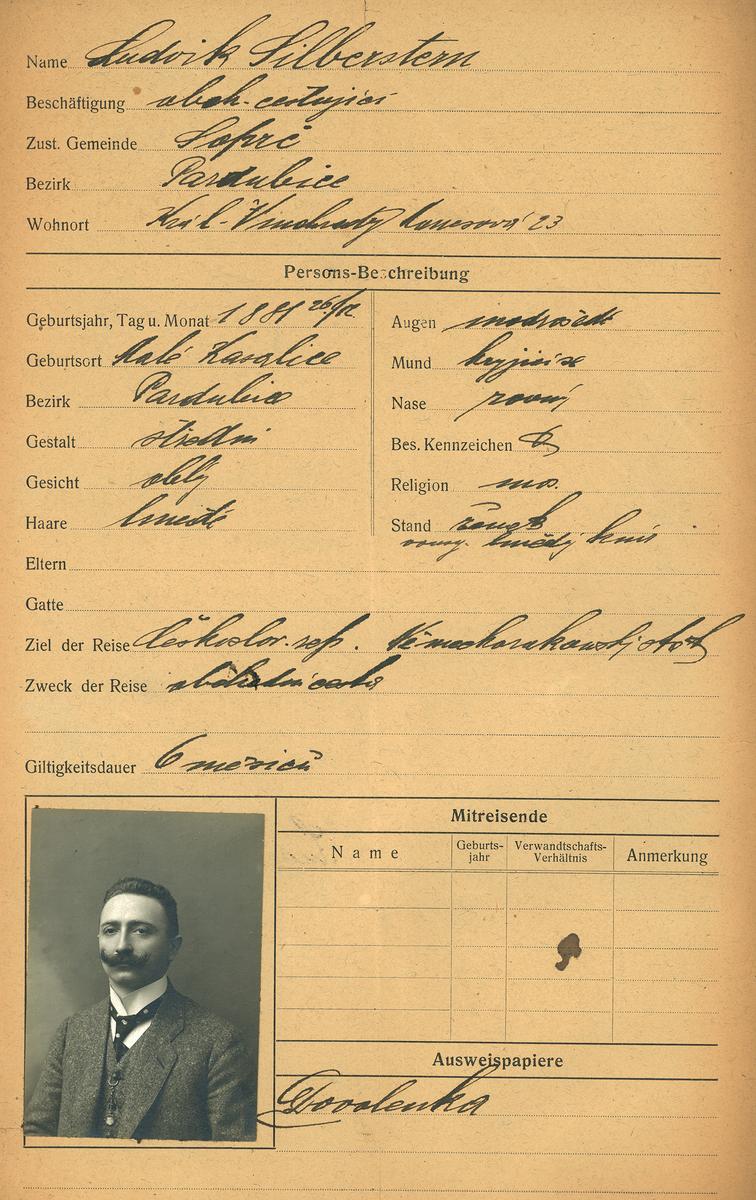 Name Ludvik Silberstern
Beschäftigung obch. cestující
Zust. Gemeinde Sopřč
Bezirk Pardubice
Wohnort Král. Vinohrady 23
Persons-Beschreibung
Geburtsjahr, Tag u. Monat 1881
Geburtsort Malé Kasalice
Bezirk Pardubice
Gestalt střední
Gesicht oblý
Haare hnědé
Augen modrošedé
Mund
Nase rovný
Bes. Kennzeichen
Religion mos.
Stand ženatý
hnědý knír
Eltern
Gatte
Ziel der Reise Českoslov. rep.
Zweck der Reise obchodní cesta
Giltigkeitsdauer 6 měsíců
Mitreisende
Name
Geburts-
jahr
Verwandtschafts-
Verhältnis
Anmerkung
Ausweispapiere
Dovolenka